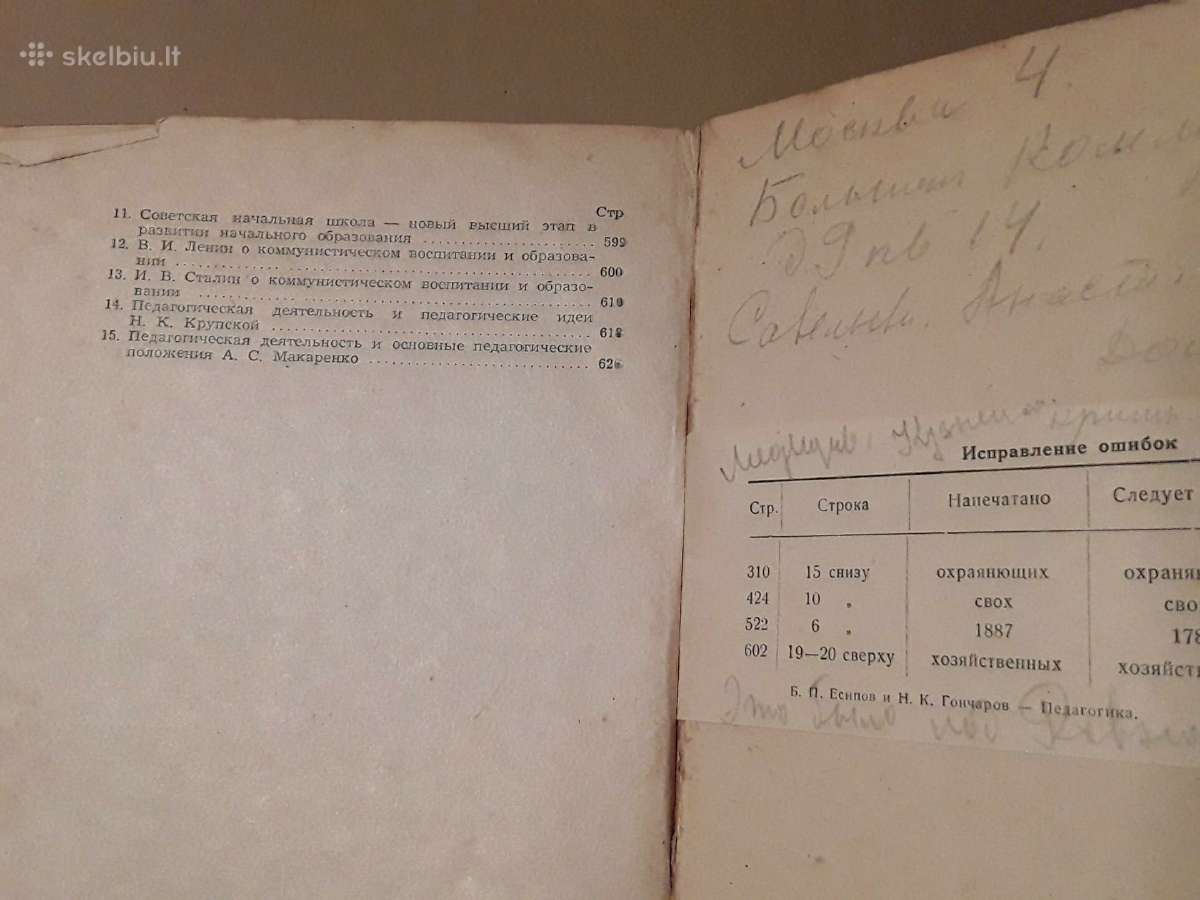 skelbiu.lt
Стр
11. Советская начальная школа — новый высший этап в
развитии начального образования 599
12. В. И. Ленин о коммунистическом воспитании и образова-
нии 600
13. И. В. Сталин о коммунистическом воспитании и образо-
вании 610
14. Педагогическая деятельность и педагогические идеи
Н. К. Крупской 618
15. Педагогическая деятельность и основные педагогические
положения А. С. Макаренко
Москва 4.
14.
Исправление ошибок
Стр. Строка Напечатано Следует
310 15 снизу охраяющих
424 10 „ свох
522 6 „ 1887
602 19—20 сверху хозяйственных
Б. П. Есипов и Н. К. Гончаров — Педагогика.
Это было под